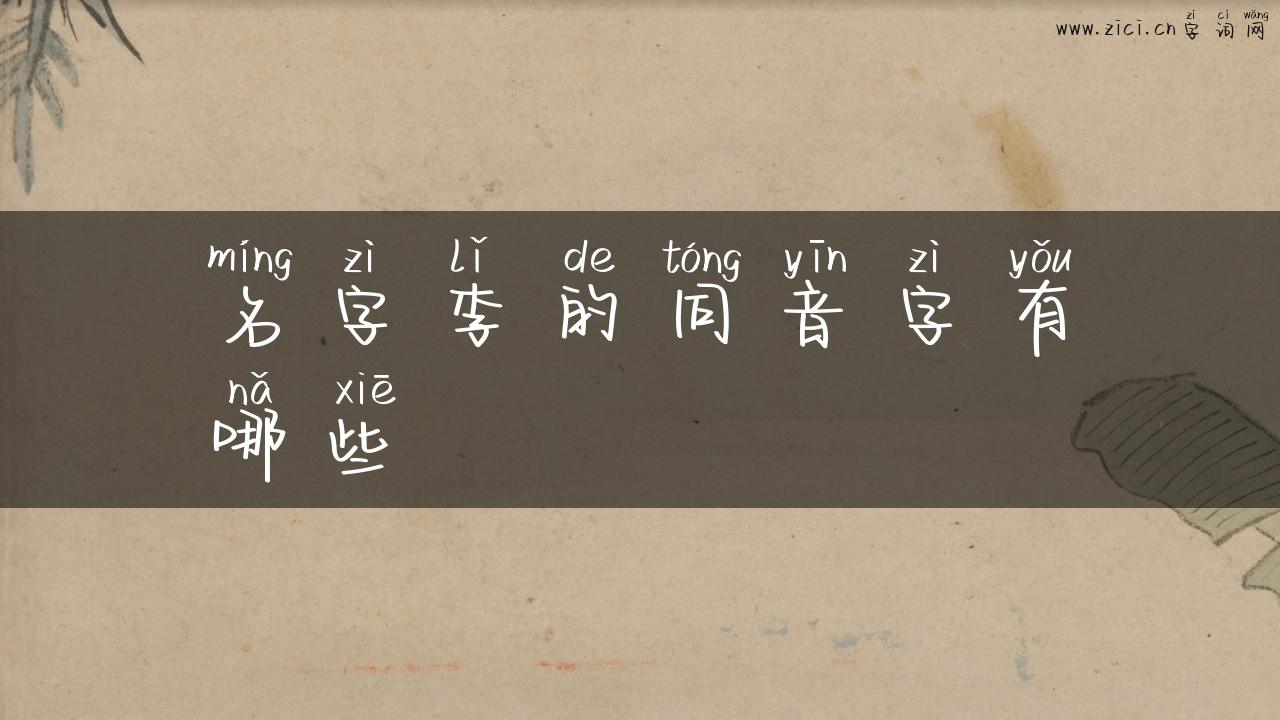 zì cí wǎng
www.zici.cn 字词网
míng zì lǐ de tóng yīn zì yǒu
名字李的同音字有
nǎ xiē
哪些